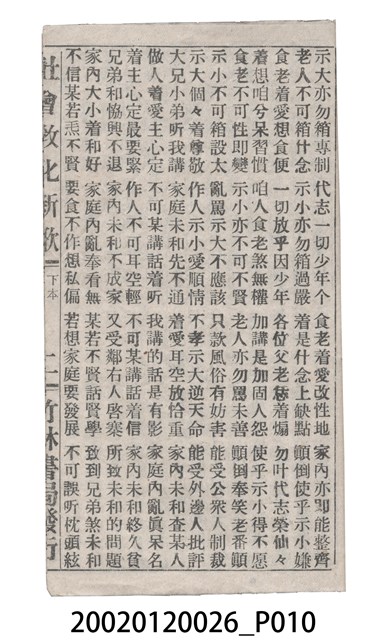 示大亦勿箱專制 代志一切少年个 食老着愛改性地 家內亦卽能整齊
老人不可箱什念 示小亦勿箱過嚴 着是什念上缺點 顚倒使乎示小嫌
食老着愛想食便 一切放乎因少年 各位父老慈着煽 勿叶代志榮仙々
着想咱兮呆習慣 咱人食老煞無權 加講是加固人怨 使乎示小得不愿
食老不可性卽變 示小亦不可不賢 老人亦勿罵未善 顚倒奉笑老番顚
示小不可箱設太 亂罵示大不應該 只款風俗有妨害 能受公衆人制裁
示大個々着尊敬 作人示小愛順情 不孝示大逆天命 能受外邊人批評
大兄小弟听我講 家庭未和先不通 着愛耳空放恰重 家內未和查某人
做人着愛主心定 不可某講話着听 我講的話是有影 家庭內亂眞呆名
着主心定最要緊 作人不可耳空輕 不可某講話着信 家內未和終久貧
兄弟和恊興不退 家內未和不成家 又受鄰右人啓寨 所致未和的問題
家內大小着和好 家庭內亂奉看無 某若不賢話賢學 致到兄弟煞未和
不信某若恁不賢 要食不作想私偏 若想家庭要發展 不可誤听枕頭絃
社會敎化新歌 下本 二 竹林書局發行
20020120026_P010